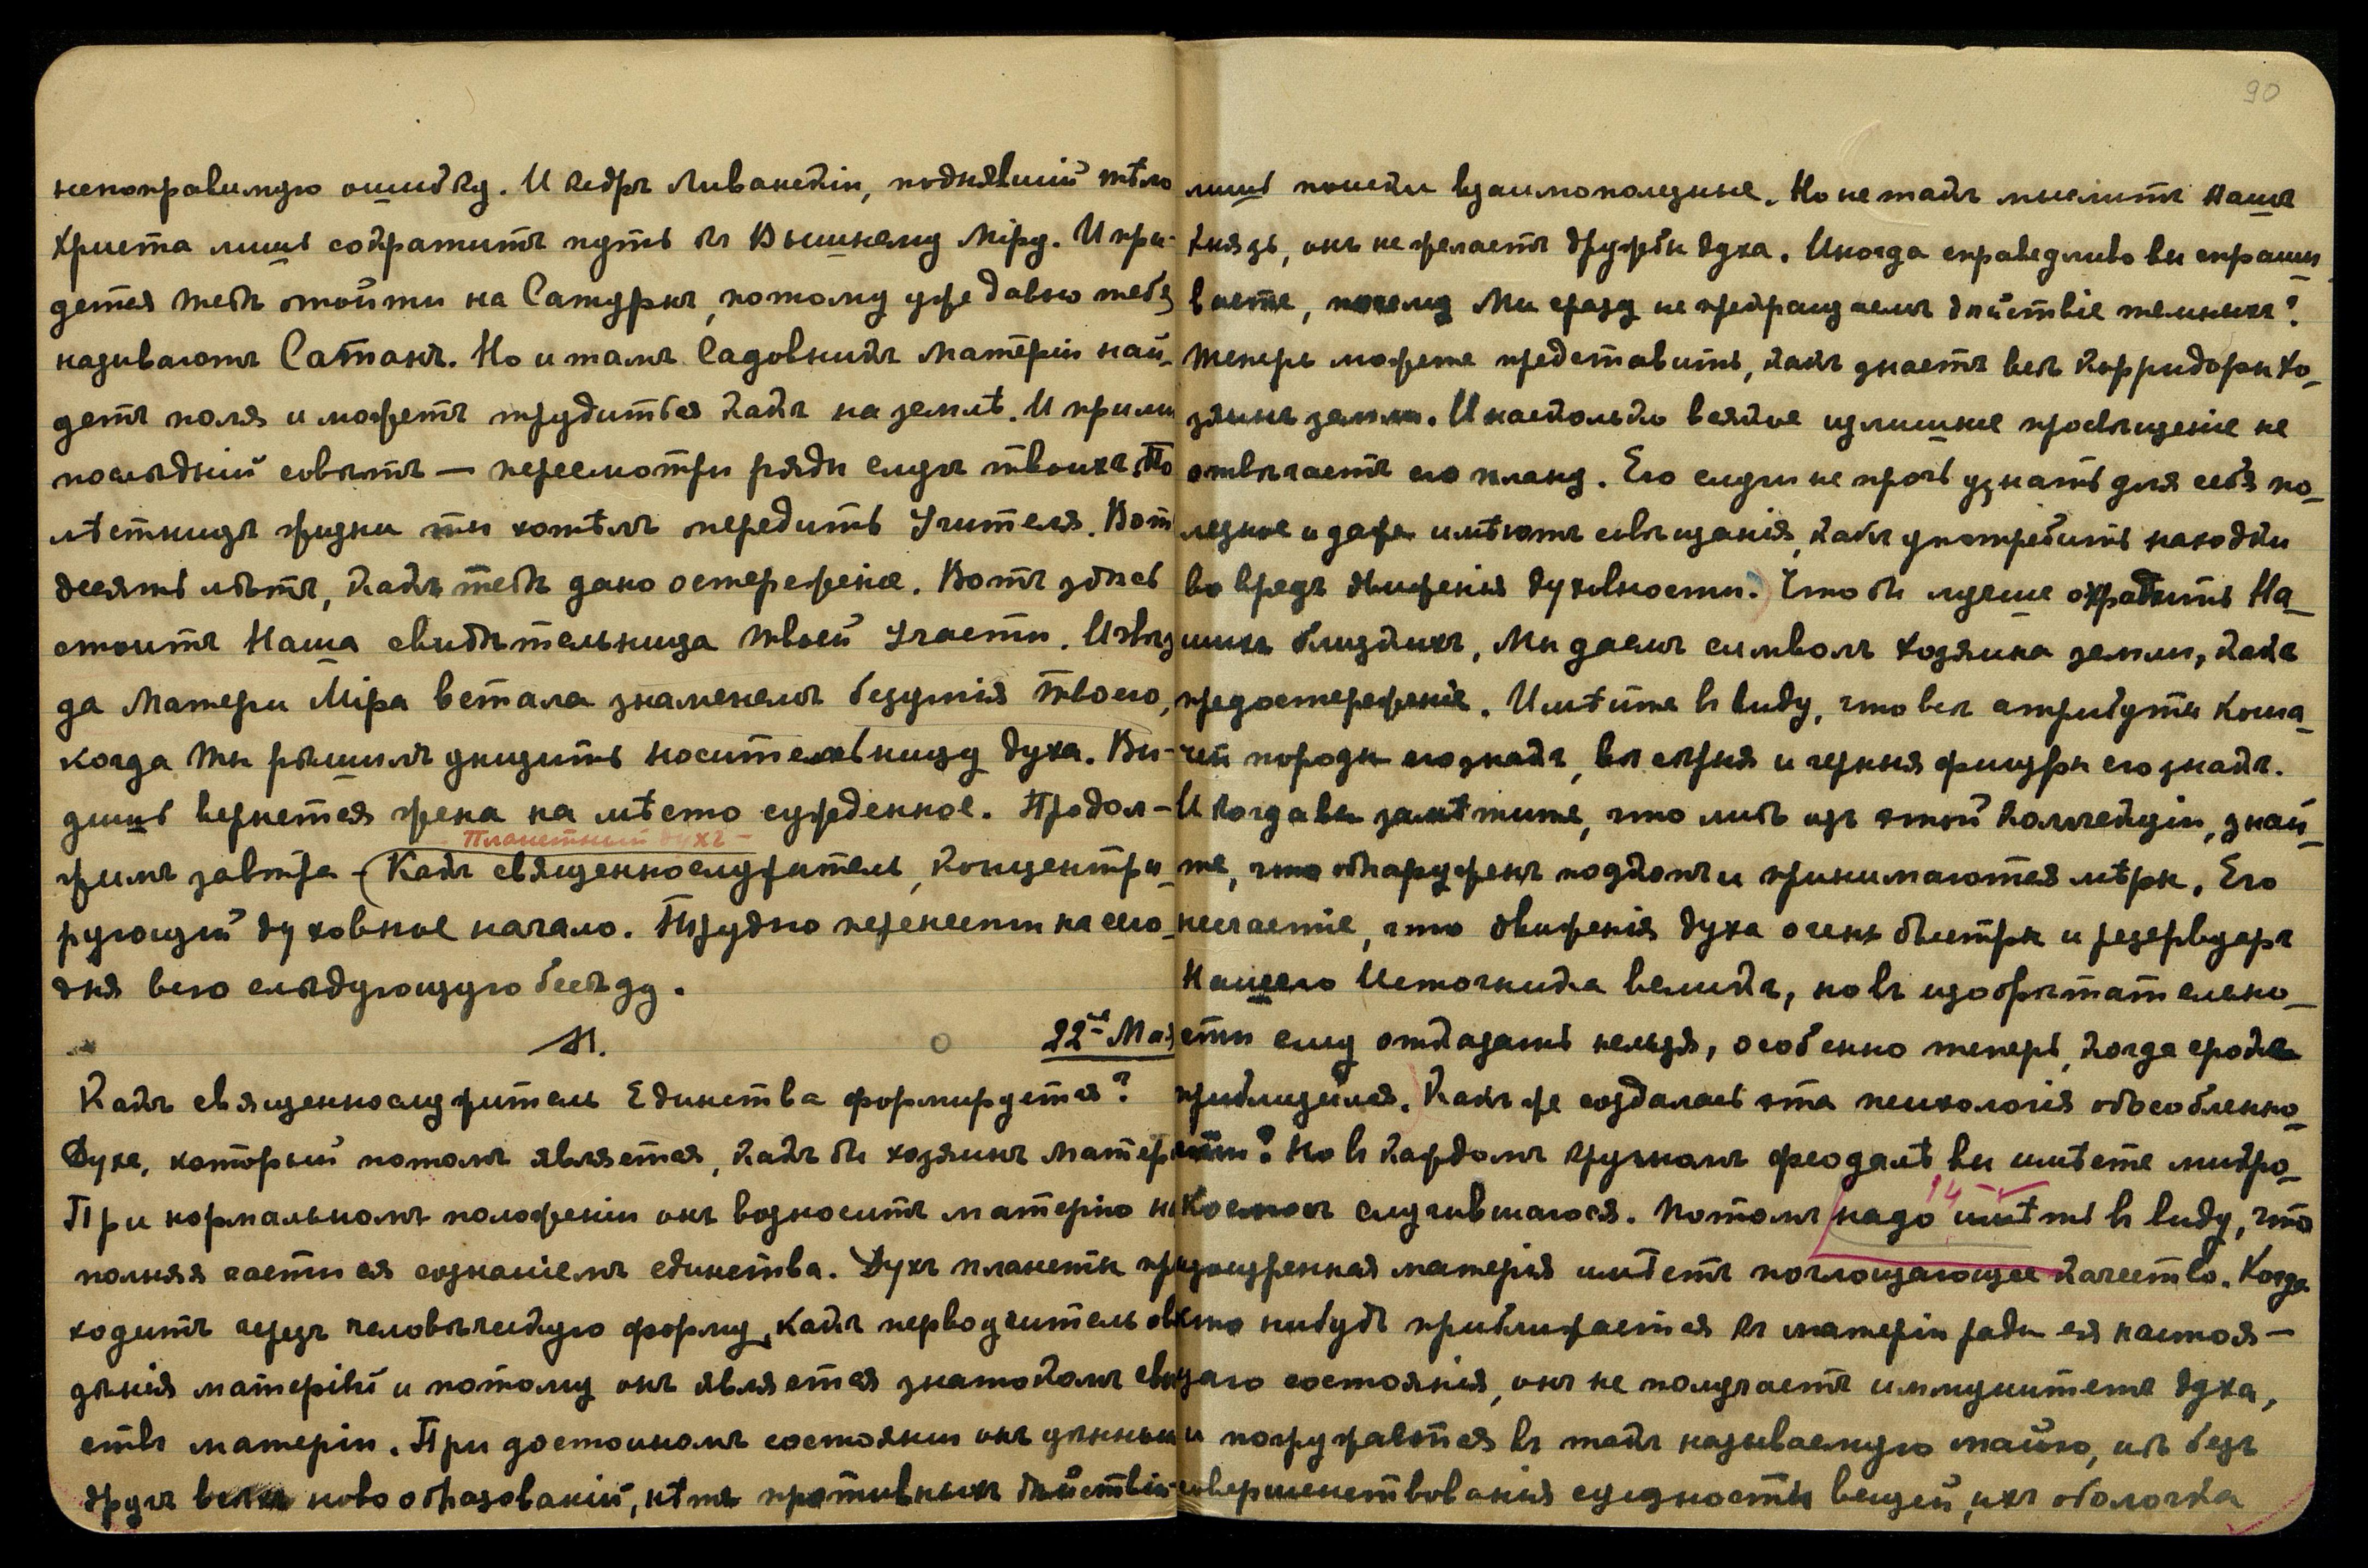 непоправимую ошибку. И кедръ Ливанскiй, поднявшiй тѣло
Христа лишь сократитъ путь къ Вышнему Мiру. И при-
детса тебѣ отойти на Сатурнъ, потому уже давно тебя
называютъ Сатанъ. Но и тамъ Садовникъ Матерiи най-
детъ поля и можетъ трудиться какъ на землѣ. И прими
послѣднiй совѣтъ — пересмотри ряды слугъ твоихъ. По
лѣстницѣ жизни ты хотѣлъ передить Учителя. Вотъ
десять лѣтъ, какъ тебѣ дано остереженiе. Вотъ здѣсь
стоитъ Наша свидѣтельница твоей участи. И звѣз
да Матери Мiра встала знаменемъ безумiя твоего,
когда ты рѣшилъ унизить носительницу духа. Ви-
дишь вернется жена на мѣсто сужденное. Продол-
Планетный духъ —
жимъ завтра — (Какъ священнослужитель, концентри-
рующiй духовное начало. Трудно перенести на сего-
дня всю слѣдующую бесѣду.
М. 22-ое Мая
Какъ священнослужитель Единства формируется?
Духе, который потомъ является, какъ бы хозяинъ матер
При нормальномъ положенiи онъ возноситъ матерiю на
полняя части ея сознанiемъ единства. Духъ планеты про
ходитъ черезъ человѣческую форму, какъ первоучитель овл
дѣнiя матерiей и потому онъ является знатокомъ свой
ствъ матерiи. При достойномъ состоянiи онъ цѣнный
другъ всѣхъ новообразованiй, нѣтъ противныхъ дѣйствiй
90
лишь поиски взаимополезные. Но не такъ мыслитъ нашъ
Князь, онъ не желаетъ дружбы духа. Иногда справедливо вы спраши
ваете, почему Мы сразу не прекращаемъ дѣйствiе темныхъ?
Теперь можете представить, какъ знаетъ всѣ корридоры Хо-
зяинъ земли. И насколько всякое излишнее просвѣщенiе не
отвѣчаетъ его плану. Его слуги не прочь узнать для себя по-
лезное и даже имѣютъ совѣщанiя, какъ употребить находки
во вредъ движенiя духовности. Чтобы лучше охранить На-
шихъ близкихъ, Мы даемъ символъ хозяина земли, какъ
предостереженiе. Имѣйте въ виду, что всѣ атрибуты Коша-
чей породы его знакъ, всѣ сѣрыя и черныя фигуры его знакъ.
И когда вы замѣтите, что либо изъ этой коллекцiи, знай-
те, что обнаруженъ подкопъ и принимаются мѣры. Его
несчастiе, что движенiя духа очень быстры и резервуаръ
Нашего Источника великъ, но въ изобрѣтательно-
сти ему отказать нельзя, особенно теперь, когда сроки
приблизился. Какъ же создалась эта психологiя обособленно-
сти? Но въ каждомъ грузномъ феодалѣ вы имѣете микро-
Космосъ случившагося. Потомъ надо имѣть въ виду, что
14
изощренная матерiя имѣетъ поглощающее качество. Когда
кто нибудь приближается къ матерiи ради ея настоя-
щаго состоянiя, онъ не получаетъ иммунитетъ духа,
и погружается въ такъ называемую майю, ибо безъ
совершенствованiя сущности вещей, ихъ оболочка